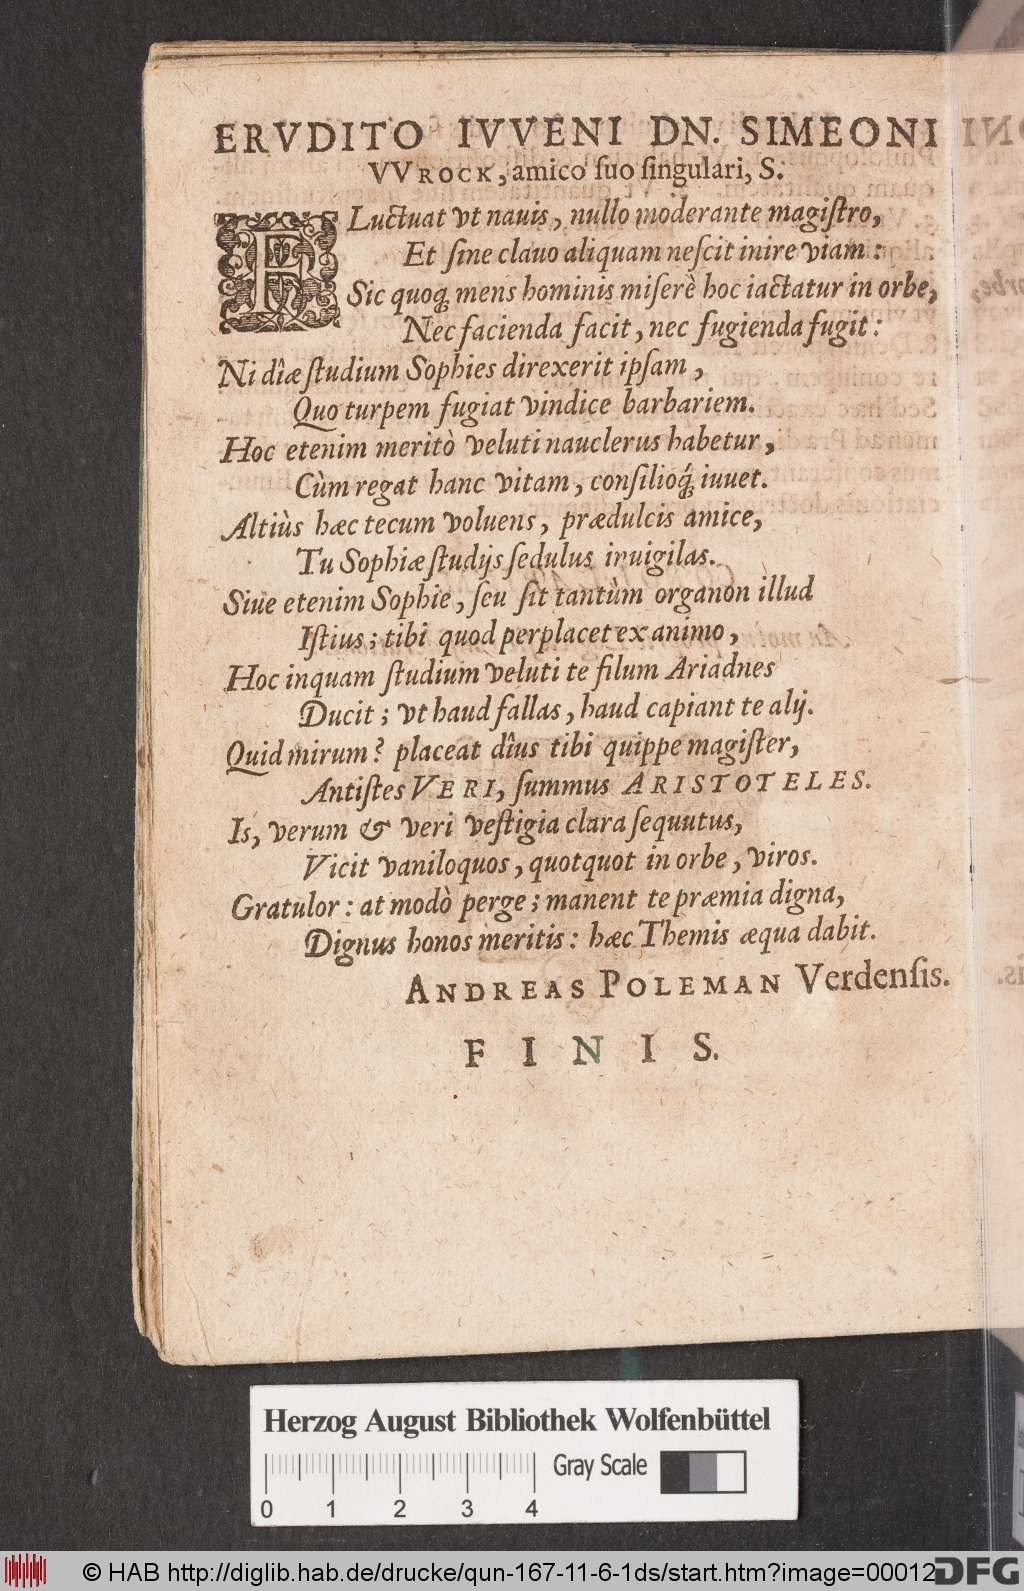 ERVDITO IVVENI DN. SIMEONI
VVROCK, amico ſuo ſingulari, S.
FLuctuat vt nauis, nullo moderante magiſtro,
Et ſine clauo aliquam neſcit inire viam:
Sic quoq; mens hominis miſerè hoc iactatur in orbe,
Nec facienda facit, nec fugienda fugit:
Ni dîæ ſtudium Sophies direxerit ipſam,
Quo turpem fugiat vindice barbariem.
Hoc etenim meritò veluti nauclerus habetur,
Cùm regat hanc vitam, conſilioq́; iuuet.
Altiùs hæc tecum voluens, prædulcis amice,
Tu Sophiæ ſtudijs ſedulus inuigilas.
Siue etenim Sophie, ſeu ſit tantùm organon illud
Iſtius; tibi quod perplacet ex animo,
Hoc inquam ſtudium veluti te filum Ariadnes
Ducit; vt haud fallas, haud capiant te alij.
Quid mirum? placeat dîus tibi quippe magiſter,
Antiſtes VERI, ſummus ARISTOTELES.
Is, verum & veri veſtigia clara ſequutus,
Vicit vaniloquos, quotquot in orbe, viros.
Gratulor: at modò perge; manent te præmia digna,
Dignus honos meritis: hæc Themis æqua dabit.
ANDREAS POLEMAN Verdenſis.
FINIS.
Herzog August Bibliothek Wolfenbüttel
Gray Scale
0 1 2 3 4
© HAB http://diglib.hab.de/drucke/qun-167-11-6-1ds/start.htm?image=00012
DFG